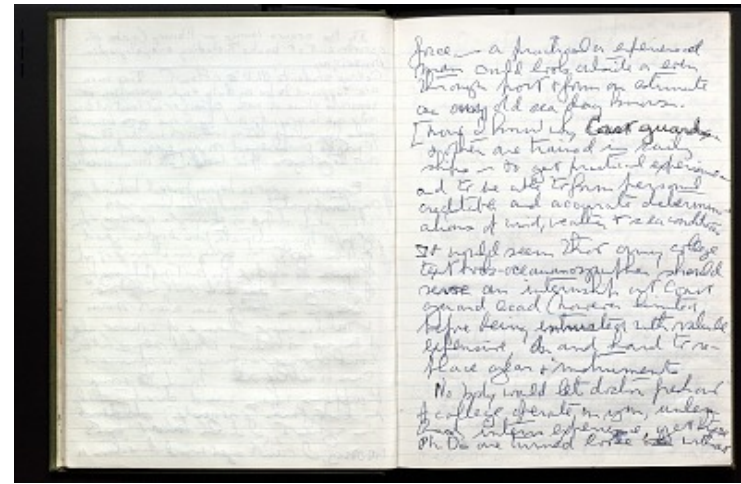 force — a practical or experienced
man could look outside or even
through port & form an estimate
as any old sea dog knows.
[ now I know why Coast guard
are trained in
ships — to get practical experience
and to be able to form personal
creditable and accurate determin-
ations of wind, weather & sea conditions
It would seem that every college
text oceanographer should
serve an internship with Coast
guard (however limited,
before being entrusted with valuable
expensive and hard to re-
place gear & instruments
No body would let doctor fresh out
of college operate on you, unless
had intern experience, yet these
Ph Ds are turned loose without